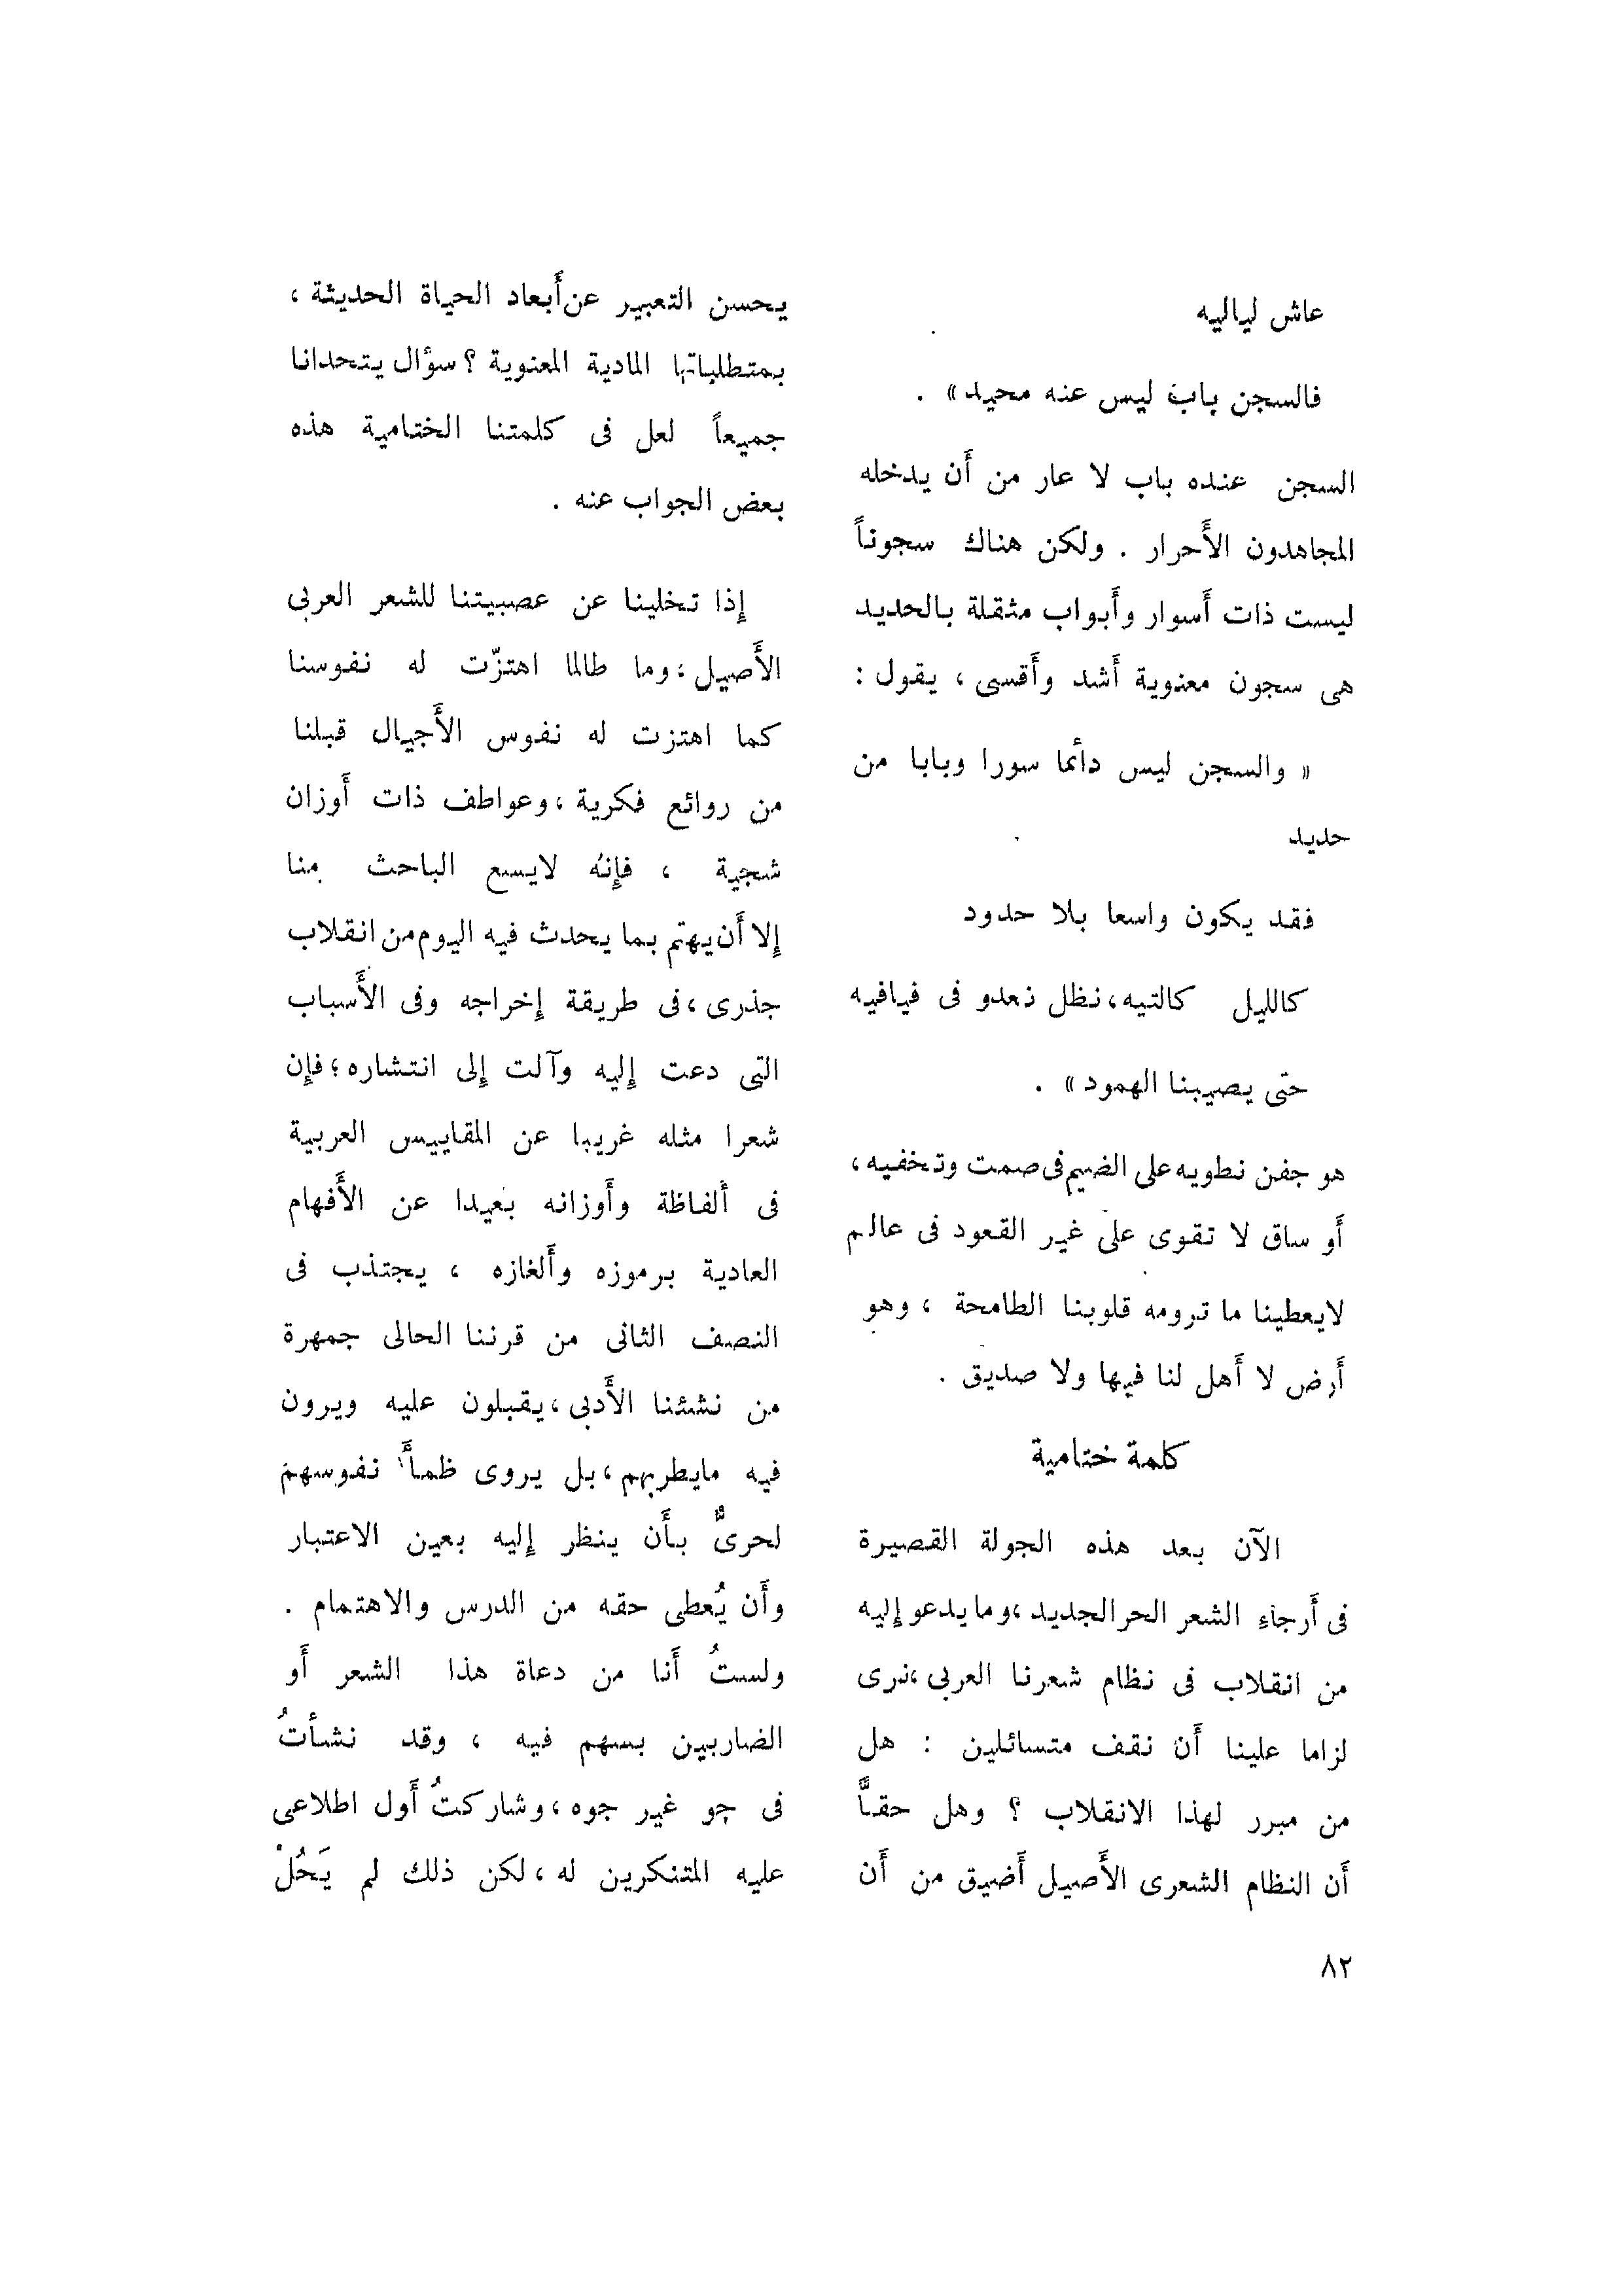 عاش لياليه
فالسجن باب ليس عنه محيد» .
السجن عنده باب لا عار من أَن يدخله
المجاهدون الأَحرار . ولكن هناك سجوناً
ليست ذات أَسوار وأَبواب مثقلة بالحديد
هى سجون معنوية أَشد وأَقسى ، يقول :
« والسجن ليس دأئما سورا وبابا من
حديد
فقد يكون واسعا بلا حدود
كالليل كالتيه،نظل نعدو فى فيافيه
حتى يصيبنا الهمود» .
هو جفن نطويه على الضيم فى صمت وتخفيه ،
أَو ساق لا تقوى على غير القعود فى عالم
لايعطينا ما ترومه قلوبنا الطامحة ، وهو
أَرض لا أَهل لنا فيها ولا صديق .
كلمة ختامية
الآن بعد هذه الجولة القصيرة
فى أَرجاءِ الشعر الحر الجديد ،وما يدعو إِليه
من انقلاب فى نظام شعرنا العربى ،نرى
لزاما علينا أَن نقف متسائلين : هل
من مبرر لهذا الانقلاب ؟ وهل حقًّا
أَن النظام الشعرى الأَصيل أَضيق من أَن
يحسن التعبير عن أَبعاد الحياة الحديثة ،
بمتطلباتها المادية المعنوية ؟ سؤال يتحدانا
جميعاً لعل فى كلمتنا الختامية هذه
بعض الجواب عنه .
إِذا تخلينا عن عصبيتنا للشعر العربى
الأَصيل ،وما طالما اهتزّت له نفوسنا
كما اهتزت له نفوس الأَجيال قبلنا
من روائع فكرية ،وعواطف ذات أَوزان
شجية ، فإِنه لايسع الباحث منا
إِلا أَن يهتم بما يحدث فيه اليوم من انقلاب
جذرى ،فى طريقة إِخراجه وفى الأَسباب
التى دعت إِليه وآلت إِلى انتشاره ؛فإِن
شعرا مثله غريبا عن المقاييس العربية
فى ألفاظة وأَوزانه بعيدا عن الأَفهام
العادية برموزه وأَلغازه ، يجتذب فى
النصف الثانى من قرننا الحالى جمهرة
من نشئنا الأَدبى ،يقبلون عليه ويرون
فيه مايطربهم ،بل يروى ظمأَ نفوسهم
لحرىٌّ بأَن ينظر إِليه بعين الاعتبار
وأَن يُعطى حقه من الدرس والاهتمام .
ولستُ أَنا من دعاة هذا الشعر أَو
الضاربين بسهم فيه ، وقد نشأتُ
فى جو غير جوه ،وشاركتُ أَول اطلاعى
عليه المتنكرين له ،لكن ذلك لم يَحُلْ
٨٢